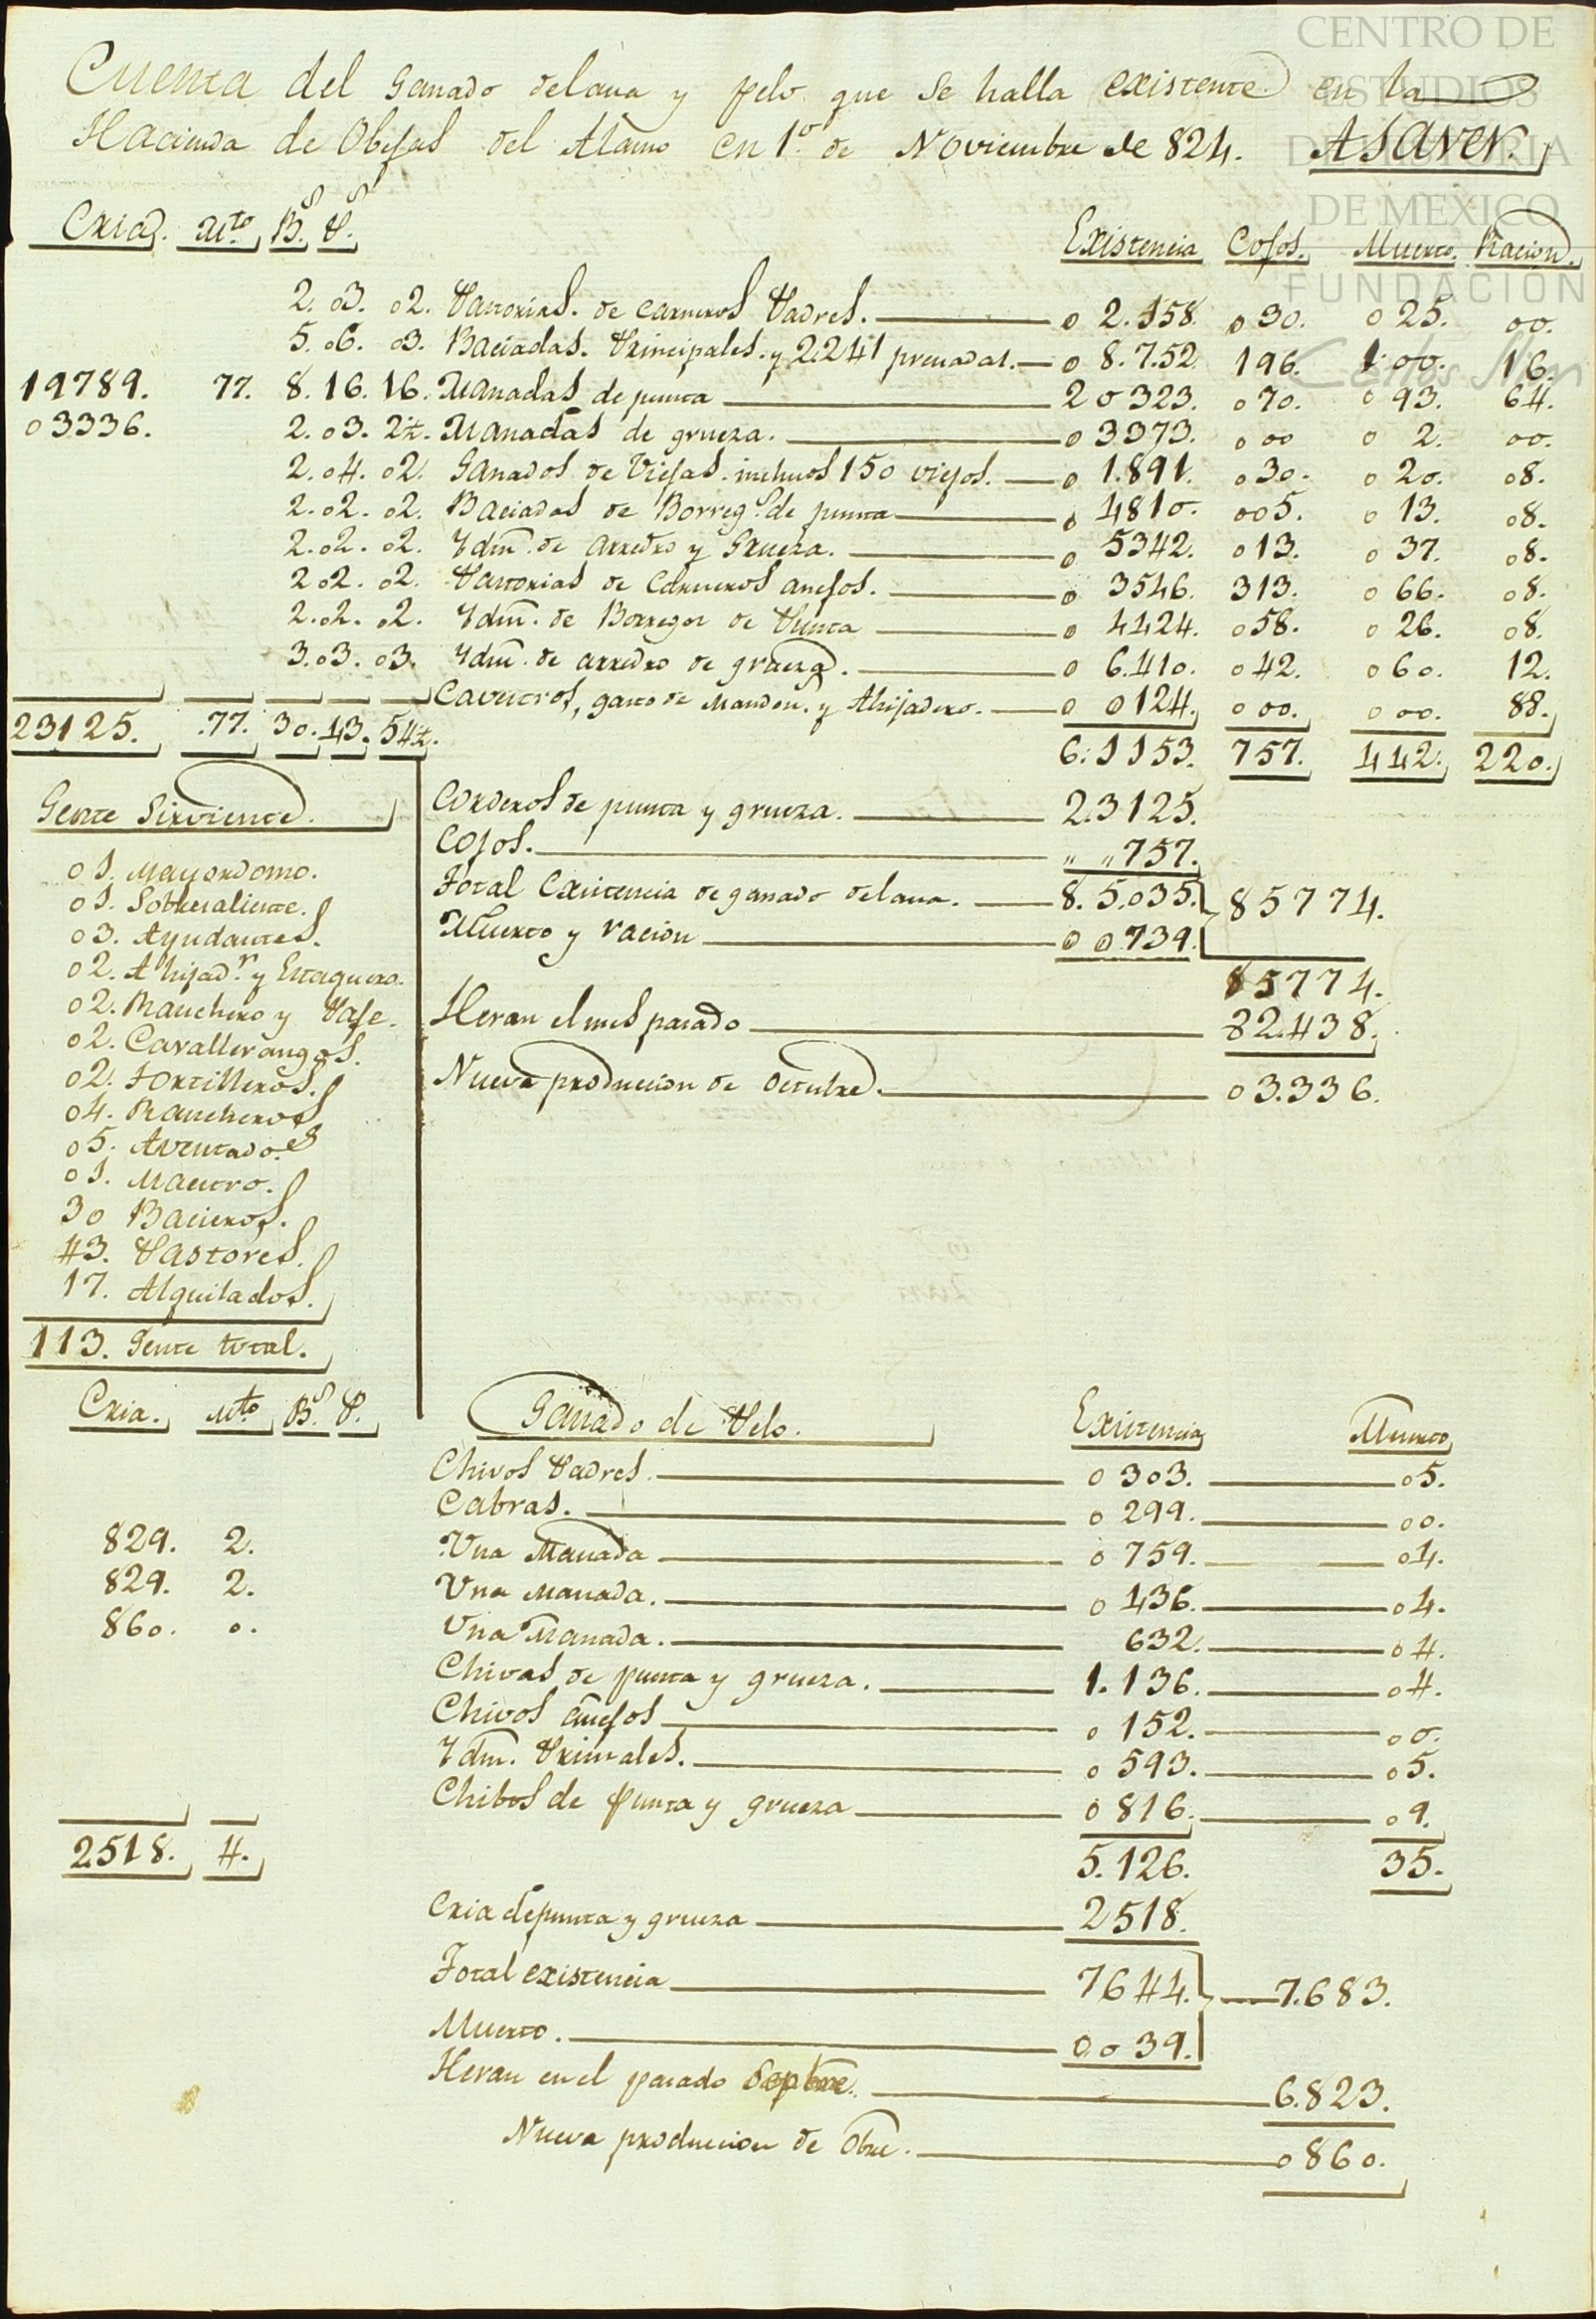 CENTRO DE
ESTUDIOS
DE HISTORIA
DE MEXICO
FUNDACIÓN
Carlos Slim
Cuenta del Ganado delana y pelo que se halla existente en la
Hacienda de Obejas del Alamo en 1º de Noviembre de 824. Asaver.
Cria. Mto. Bs. Ps. Existencia Cojos. Muerto. Racion.
2. 03. 02. Pastorias. de carneros Padres. 0 2.158. 030. 025. 00.
5. 06. 03. Baciadas. Principales. y 2241 preñadas. 0 8.752. 196. 100. 16.
19789. 77. 8. 16. 16. Manadas de punta 20323. 070. 093. 64.
03336. 2. 03. 21. Manadas de grueza. 03373. 000 0 2. 00.
2. 04. 02. Ganados de Viejas. inclusos 150 viejos. 0 1.891. 030. 020. 08.
2. 02. 02. Baciadas de Borregs. de punta 0 4810. 005. 0 13. 08.
2. 02. 02. Ydm. de arredro y Grueza. 0 5342. 013. 0 37. 08.
2. 02. 02. Pastorias de Carneros anejos. 0 3546. 313. 0 66. 08.
2. 02. 02. Ydm. de Borregos de Punta 0 4424. 058. 0 26. 08.
3. 03. 03. Ydm. de arredro de grueza. 0 6.410. 042. 060. 12.
Caveceros, gasto de Mandon. y Ahijadero. 0 0124. 000. 000. 88.
23125. .77. 30. 43. 54½. 6.1153. 757. 442. 220.
Gente Sirviente.
01. Mayordomo.
01. Sobresaliente.
03. Ayudantes.
02. Ahijadr. y Estaquero.
02. Ranchero y Page.
02. Cavallerangos.
02. Tortilleros.
04. Rancheros
05. Aventadores
01. Maestro.
30 Bacieros.
43. Pastores.
17. Alquilados.
113. Gente total.
Corderos de punta y grueza. 23125.
Cojos. " " 757.
Total Existencia de ganado delana. 8.5035. 85774.
Muerto y racion 00739.
85774.
Heran el mes pasado 82.438.
Nueva producion de Octubre. 03.336.
Cria. Mto. Bs. P. Ganado de Pelo. Existencia Muerto
Chivos Padres. 0303. 05.
Cabras. 0299. 00.
829. 2. Una Manada 0759. 04.
829. 2. Una Manada. 0436. 04.
860. 0. Una Manada. 632. 04.
Chivas de punta y grueza. 1.136. 04.
Chivos anejos 0152. 00.
Ydm. Primales. 0593. 05.
Chibos de punta y grueza 0816. 09.
2518. 4. 5.126. 35.
Cria de punta y grueza 2518.
Total existencia 7644. 7.683.
Muerto. 0039.
Heran en el pasado Sepbre. 6.823.
Nueva producion de Obre. 0860.